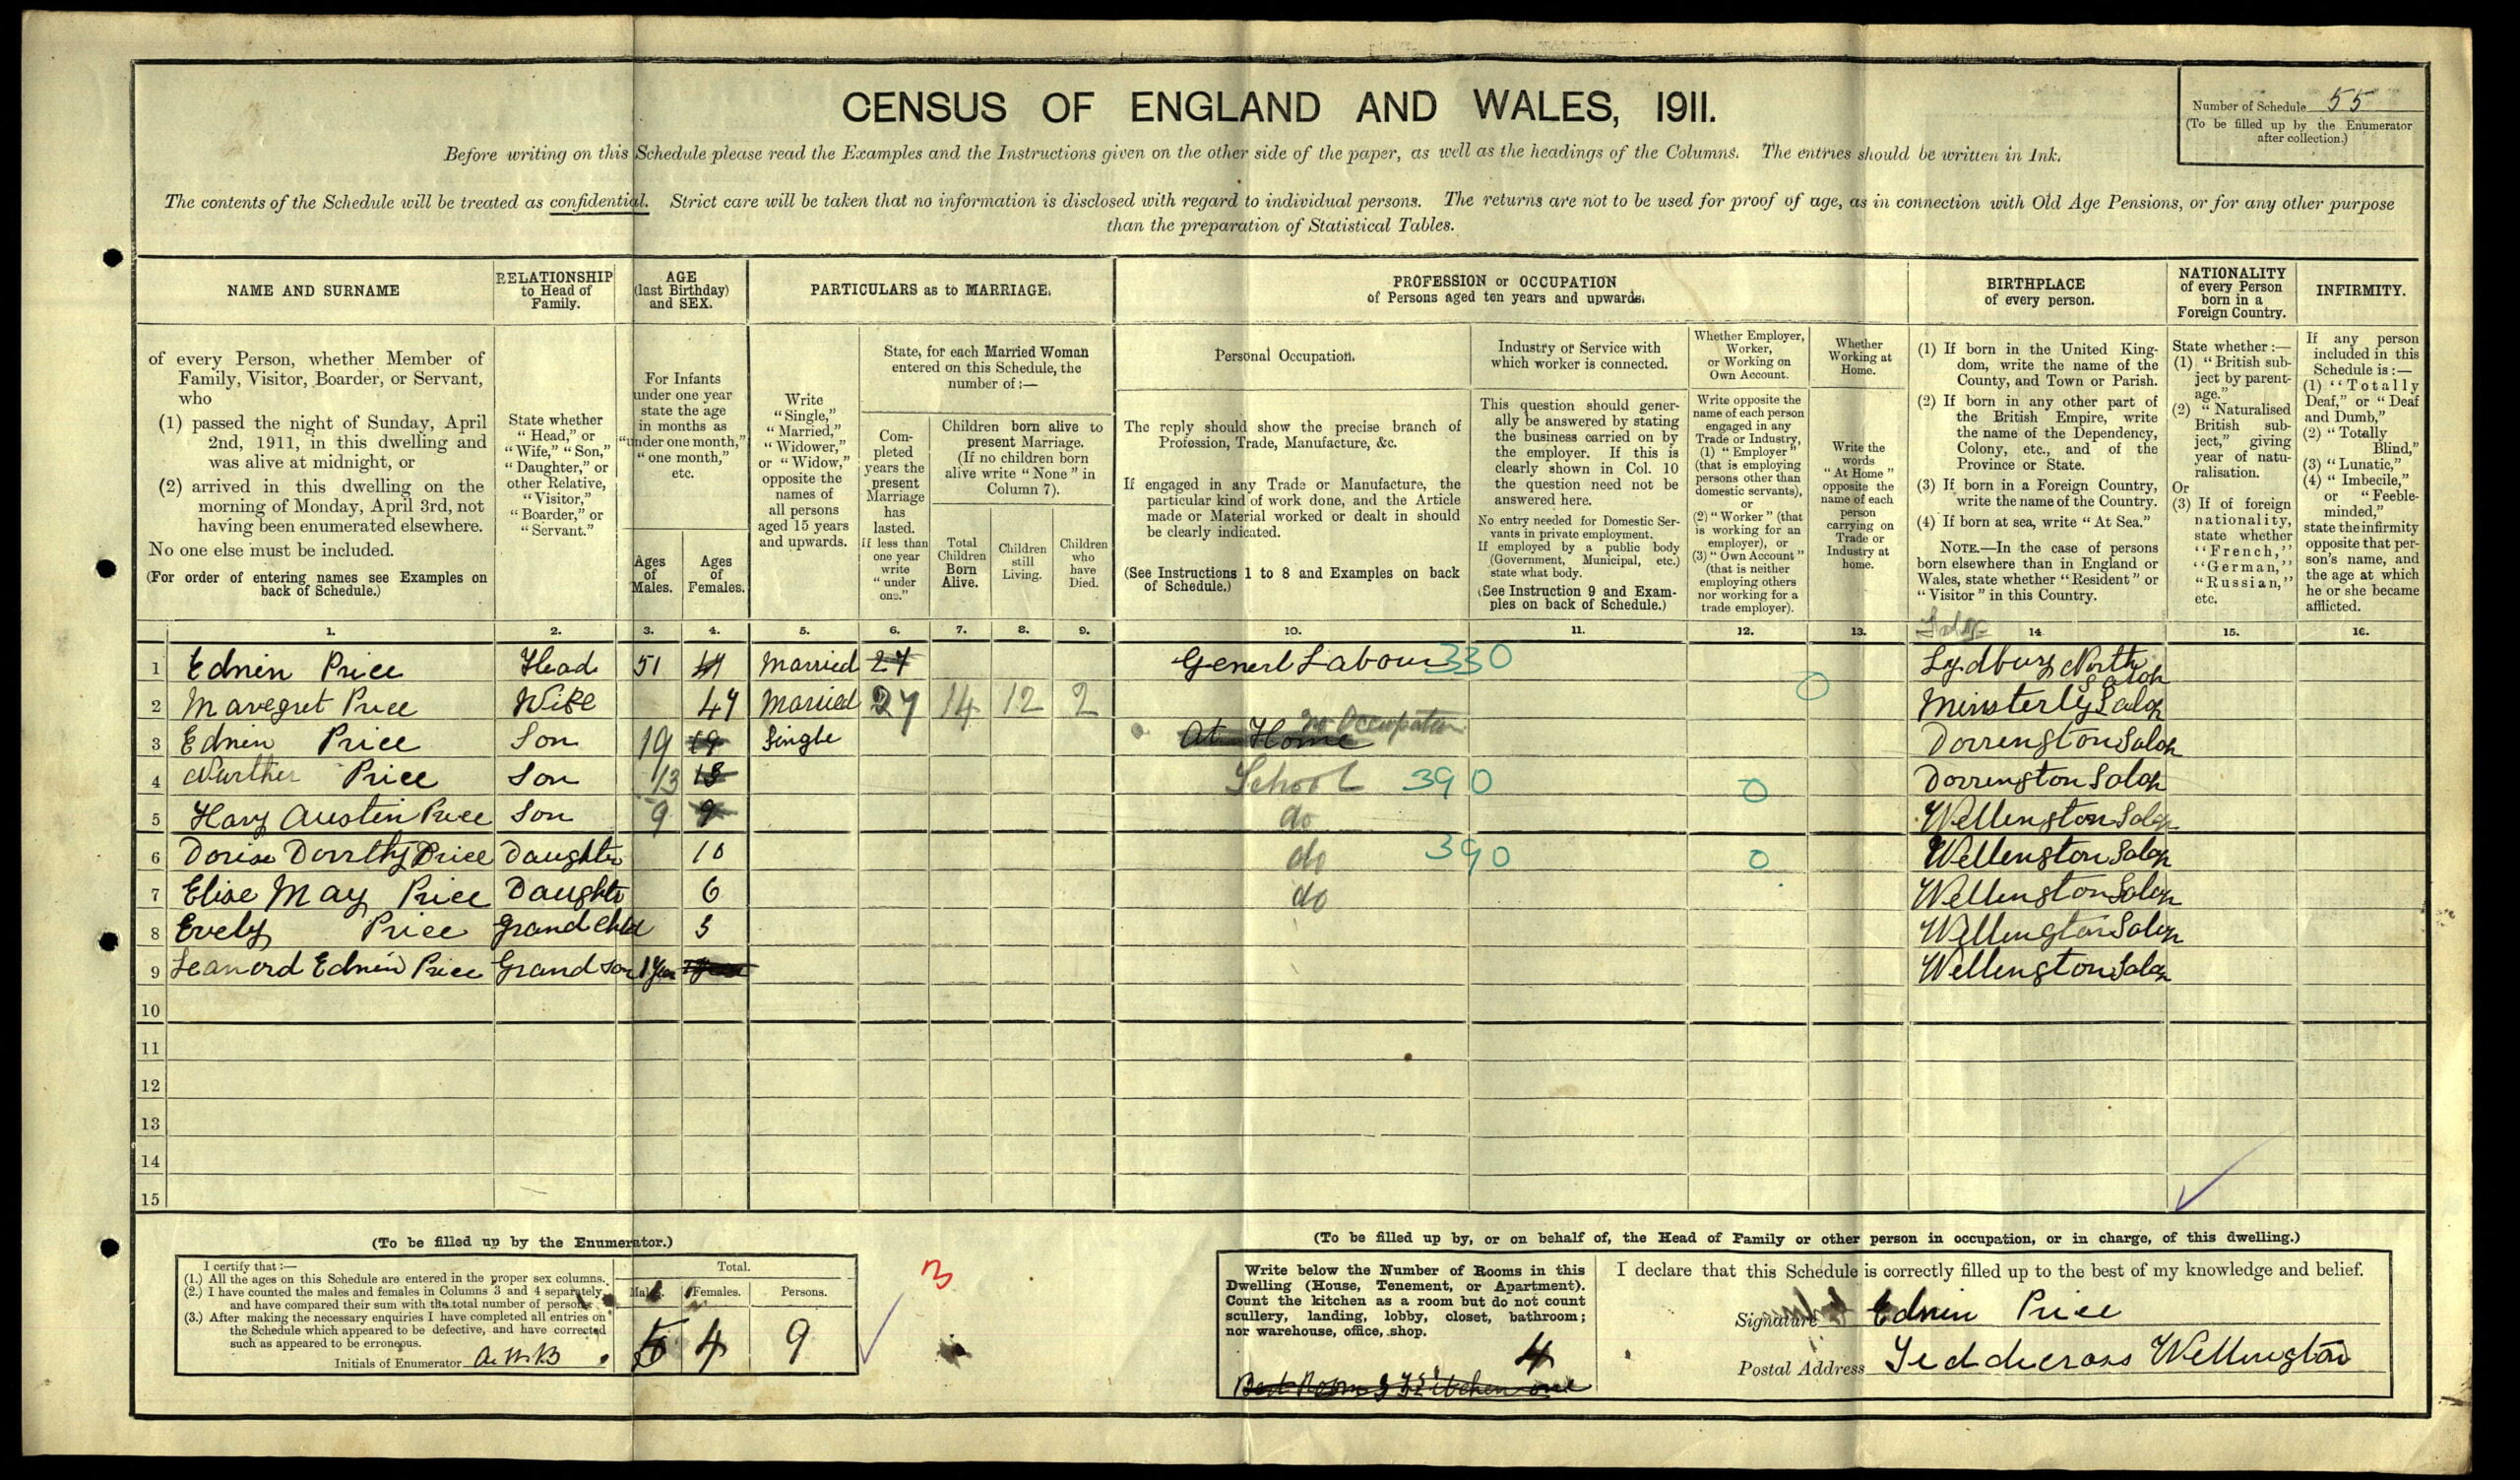 CENSUS OF ENGLAND AND WALES, 1911.
Number of Schedule 55
(To be filled up by the Enumerator
after collection.)
Before writing on this Schedule please read the Examples and the Instructions given on the other side of the paper, as well as the headings of the Columns. The entries should be written in Ink.
The contents of the Schedule will be treated as confidential. Strict care will be taken that no information is disclosed with regard to individual persons. The returns are not to be used for proof of age, as in connection with Old Age Pensions, or for any other purpose
than the preparation of Statistical Tables.
NAME AND SURNAME
of every Person, whether Member of
Family, Visitor, Boarder, or Servant,
who
(1) passed the night of Sunday, April
2nd, 1911, in this dwelling and
was alive at midnight, or
(2) arrived in this dwelling on the
morning of Monday, April 3rd, not
having been enumerated elsewhere.
No one else must be included.
(For order of entering names see Examples on
back of Schedule.)
RELATIONSHIP
to Head of
Family.
State whether
"Head," or
"Wife," "Son,"
"Daughter," or
other Relative,
"Visitor,"
"Boarder," or
"Servant."
AGE
(last Birthday)
and SEX.
For Infants
under one year
state the age
in months as
"under one month,"
"one month,"
etc.
Ages
of
Males.
Ages
of
Females.
PARTICULARS as to MARRIAGE.
Write
"Single,"
"Married,"
"Widower,"
or "Widow,"
opposite the
names of
all persons
aged 15 years
and upwards.
State, for each Married Woman
entered on this Schedule, the
number of:—
Com-
pleted
years the
present
Marriage
has
lasted.
If less than
one year
write
"under
one."
Children born alive to
present Marriage.
(If no children born
alive write "None" in
Column 7).
Total
Children
Born
Alive.
Children
still
Living.
Children
who
have
Died.
PROFESSION or OCCUPATION
of Persons aged ten years and upwards.
Personal Occupation.
The reply should show the precise branch of
Profession, Trade, Manufacture, &c.
If engaged in any Trade or Manufacture, the
particular kind of work done, and the Article
made or Material worked or dealt in should
be clearly indicated.
(See Instructions 1 to 8 and Examples on back
of Schedule.)
Industry or Service with
which worker is connected.
This question should gener-
ally be answered by stating
the business carried on by
the employer. If this is
clearly shown in Col. 10
the question need not be
answered here.
No entry needed for Domestic Ser-
vants in private employment.
If employed by a public body
(Government, Municipal, etc.)
state what body.
(See Instruction 9 and Exam-
ples on back of Schedule.)
Whether Employer,
Worker,
or Working on
Own Account.
Write opposite the
name of each person
engaged in any
Trade or Industry,
(1) "Employer"
(that is employing
persons other than
domestic servants),
or
(2) "Worker" (that
is working for an
employer), or
(3) "Own Account"
(that is neither
employing others
nor working for a
trade employer).
Whether
Working at
Home.
Write the
words
"At Home"
opposite the
name of each
person
carrying on
Trade or
Industry at
home.
BIRTHPLACE
of every person.
(1) If born in the United King-
dom, write the name of the
County, and Town or Parish.
(2) If born in any other part of
the British Empire, write
the name of the Dependency,
Colony, etc., and of the
Province or State.
(3) If born in a Foreign Country,
write the name of the Country.
(4) If born at sea, write "At Sea."
NOTE.—In the case of persons
born elsewhere than in England or
Wales, state whether "Resident" or
"Visitor" in this Country.
NATIONALITY
of every Person
born in a
Foreign Country.
State whether:—
(1) "British sub-
ject by parent-
age."
(2) "Naturalised
British sub-
ject," giving
year of natu-
ralisation.
Or
(3) If of foreign
nationality,
state whether
"French,"
"German,"
"Russian,"
etc.
INFIRMITY.
If any person
included in this
Schedule is:—
(1) "Totally
Deaf," or "Deaf
and Dumb,"
(2) "Totally
Blind,"
(3) "Lunatic,"
(4) "Imbecile,"
or "Feeble-
minded,"
state the infirmity
opposite that per-
son's name, and
the age at which
he or she became
afflicted.
1. 2. 3. 4. 5. 6. 7. 8. 9. 10. 11. 12. 13. 14. 15. 16.
1 Edwin Price Head 51 Married 27 Generl Labour 330 Lydbury North Salop
2 Maregret Price Wife 47 Married 27 14 12 2 0 Minsterly Salop
3 Edwin Price Son 19 19 Single At Home no Occupation Dorrington Salop
4 Price Son 13 13 School 390 0 Dorrington Salop
5 Hary Austin Price Son 9 9 do Wellington Salop
6 Dorise Dorrthy Price Daughter 10 do 390 0 Wellington Salop
7 Elise May Price Daughter 6 do Wellington Salop
8 Evely Price Grand Child 3 Wellington Salop
9 Leanord Edwin Price Grand son 1 Year Wellington Salop
10
11
12
13
14
15
(To be filled up by the Enumerator.)
I certify that:—
(1.) All the ages on this Schedule are entered in the proper sex columns.
(2.) I have counted the males and females in Columns 3 and 4 separately,
and have compared their sum with the total number of persons.
(3.) After making the necessary enquiries I have completed all entries on
the Schedule which appeared to be defective, and have corrected
such as appeared to be erroneous.
Initials of Enumerator
Total.
Males. Females. Persons.
5 4 9
(To be filled up by, or on behalf of, the Head of Family or other person in occupation, or in charge, of this dwelling.)
Write below the Number of Rooms in this
Dwelling (House, Tenement, or Apartment).
Count the kitchen as a room but do not count
scullery, landing, lobby, closet, bathroom;
nor warehouse, office, shop.
4
Bed Room 3 Kitchen one
I declare that this Schedule is correctly filled up to the best of my knowledge and belief.
Signature Edwin Price
Postal Address Wellington